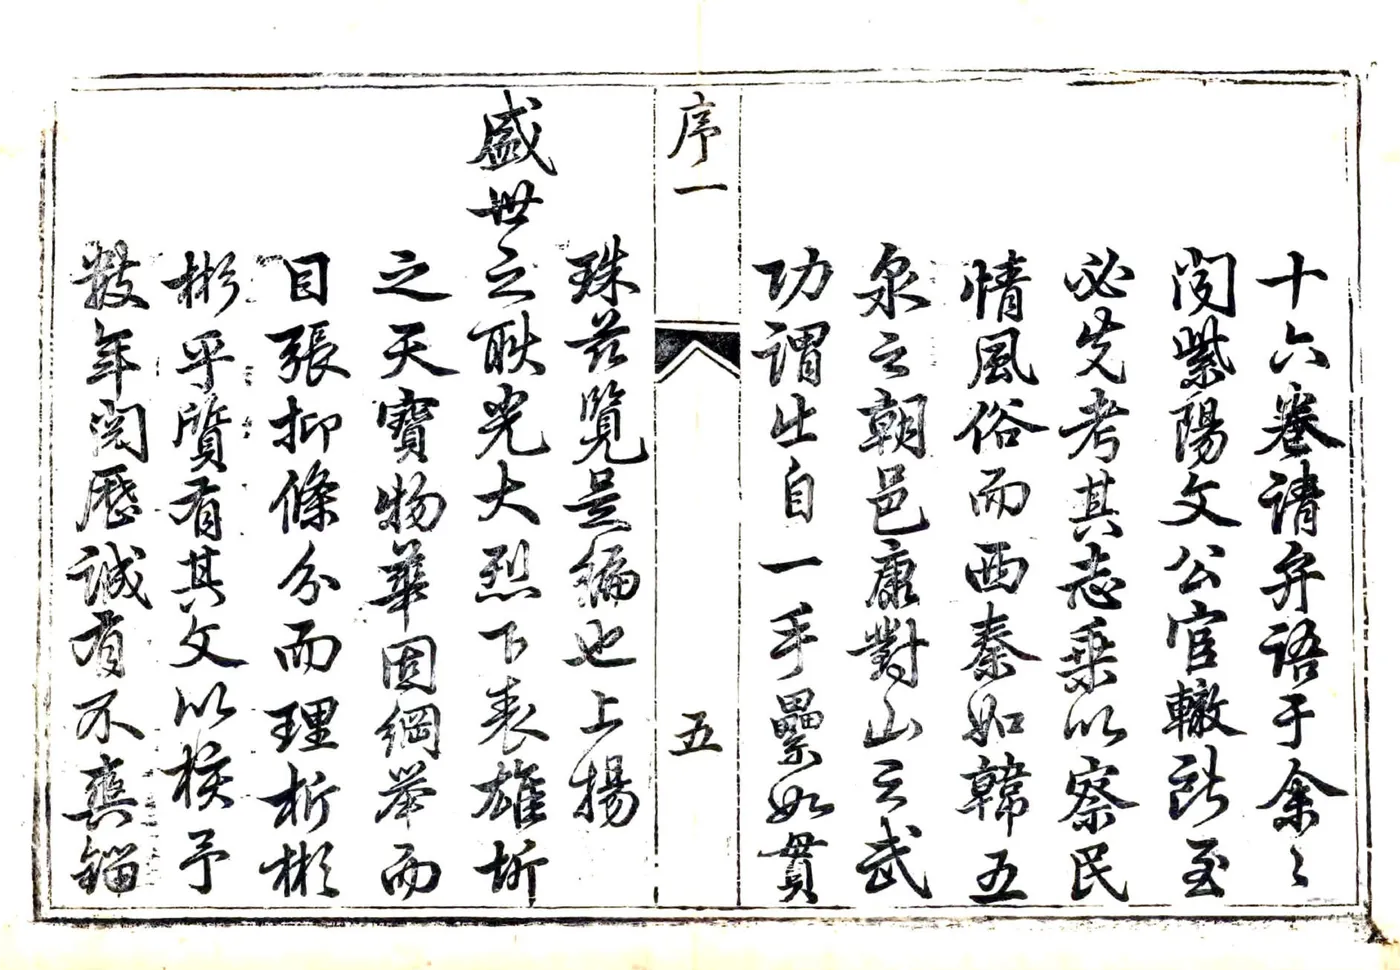 十六卷請弁語于余余
聞紫陽文公官轍所至
必先考其志乘以察民
情風俗而西秦如韓五
泉之朝邑康對山之武
功謂出自一手纍如貫
序一
五
珠茲覽是編也上揚
盛世之耿光大烈下表雄圻
之天寶物華固綱舉而
目張抑條分而理析彬
彬乎質有其文以核予
數年閱歷誠有不爽錙